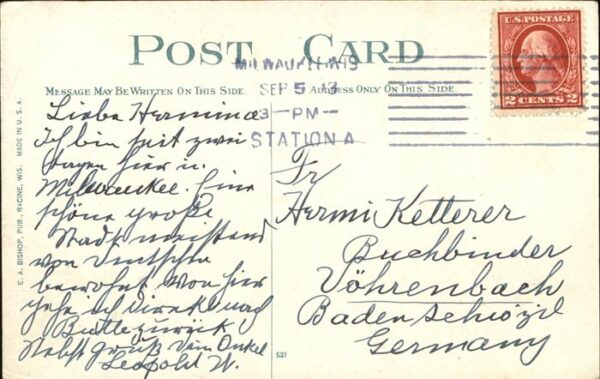 POST CARD
MESSAGE MAY BE WRITTEN ON THIS SIDE.
ADDRESS ONLY ON THIS SIDE.
MILWAUKEE WIS
SEP 5 13
3-PM-
STATION A
U.S. POSTAGE
2 CENTS 2
E. A. BISHOP, PUB., RACINE, WIS. MADE IN U. S. A.
Liebe Hermina
Ich bin seit zwei
Tagen hier u.
Milwaukee. Eine
schöne große
Stadt meistens
von Deutschen
bewohnt. Von hier
gehe ich direkt nach
Butte zurück
Nebst Gruß Dein Onkel
Leopold W.
Fr
Hermi Ketterer
Buchbinder
Vöhrenbach
Baden
Germany
521